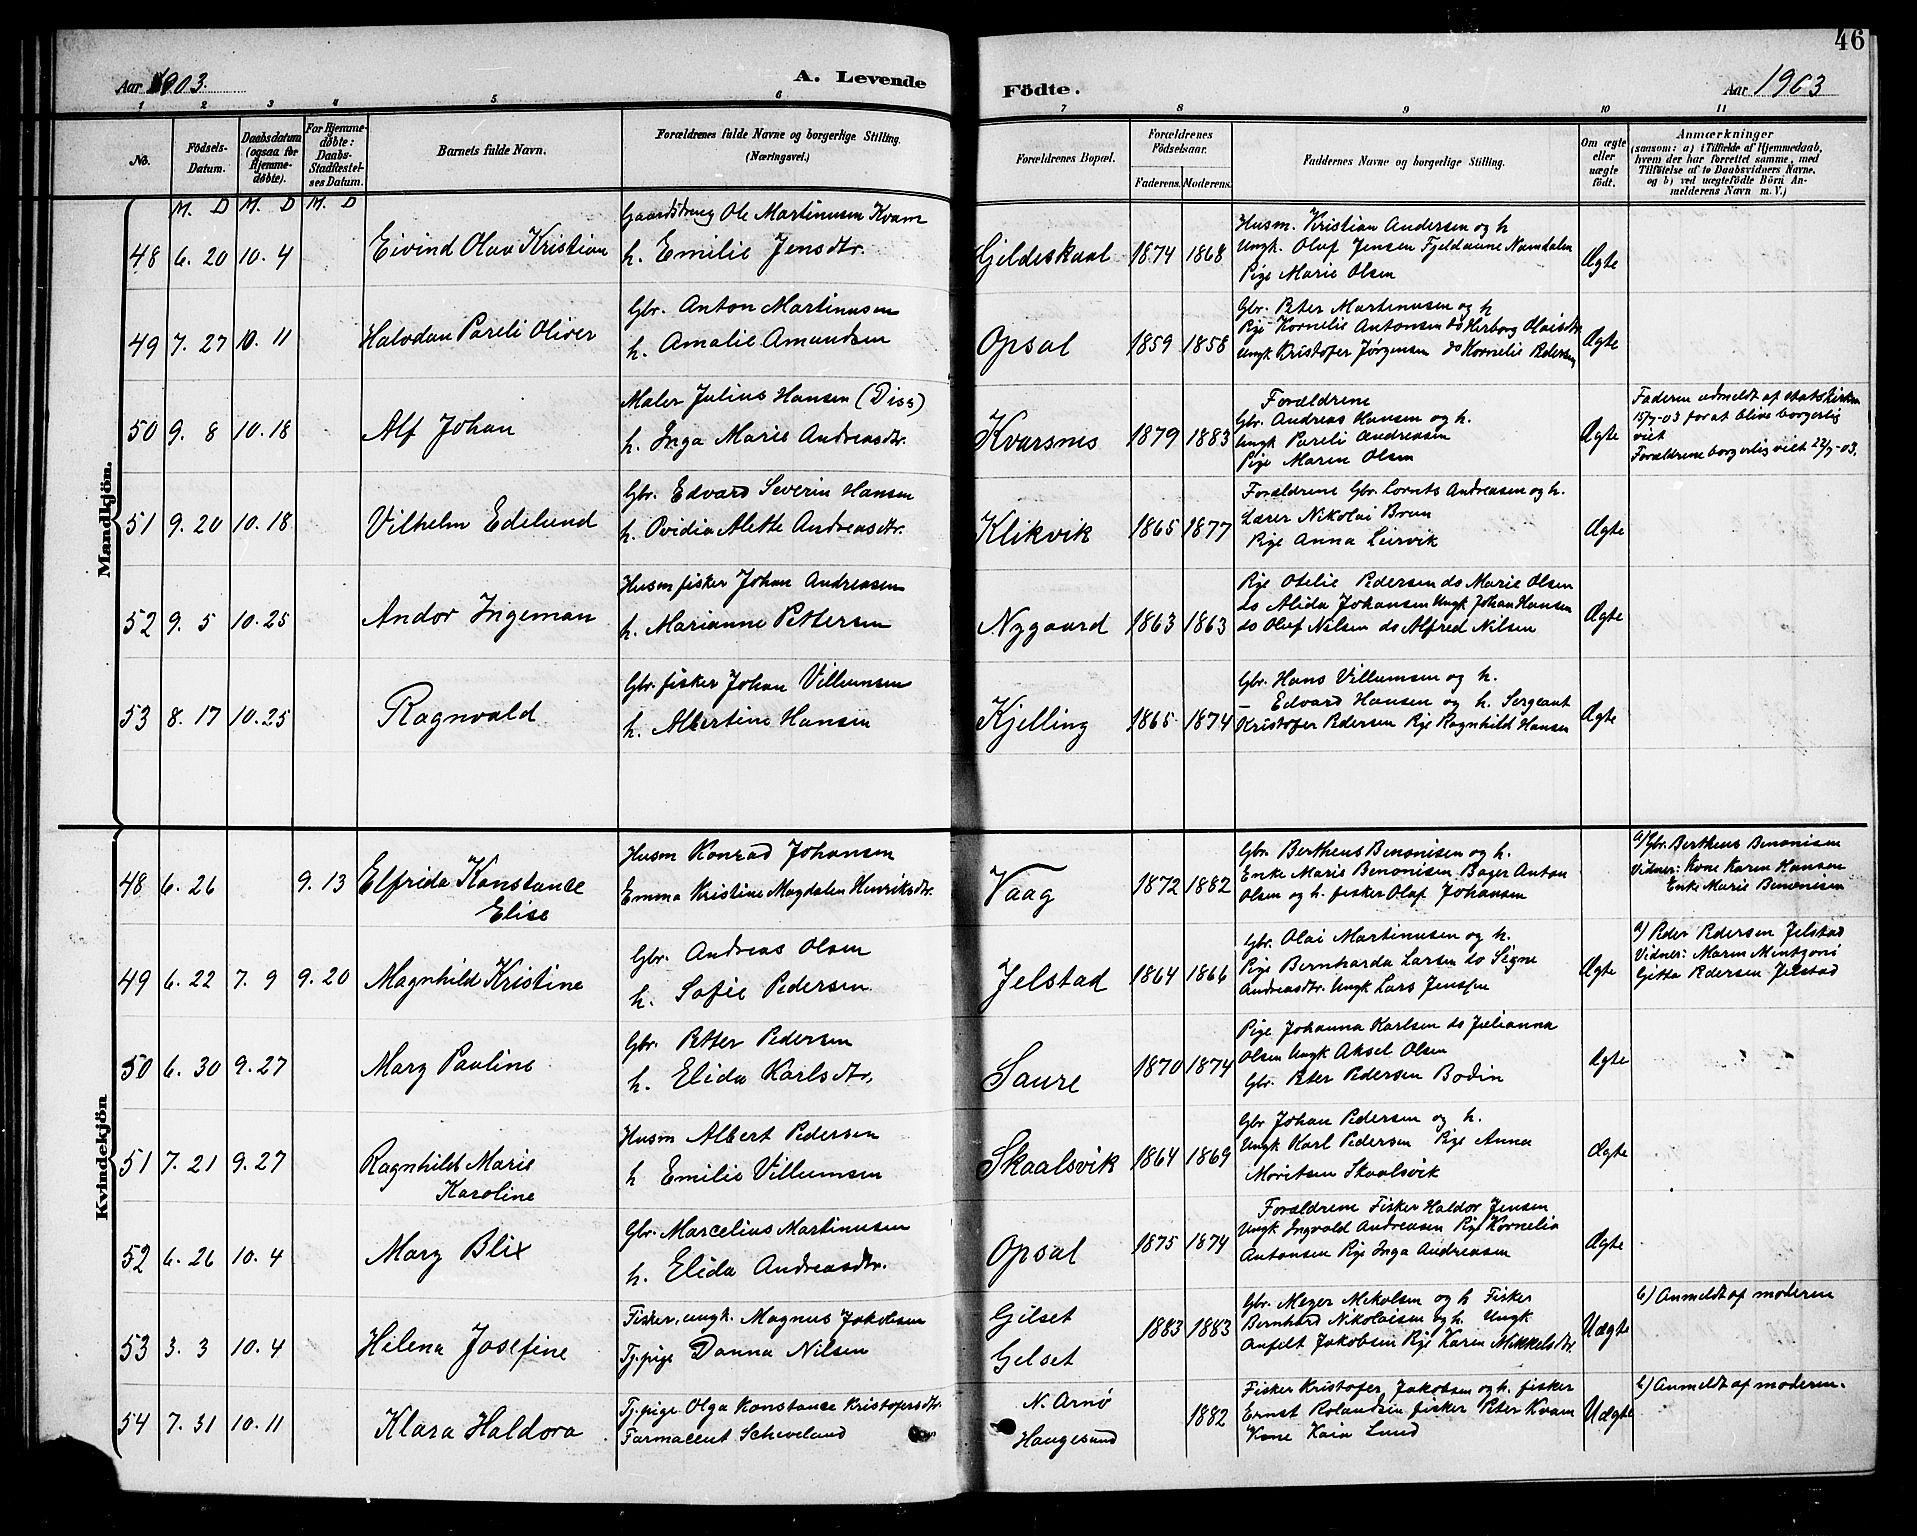 46
Aar 1903.
A. Levende
Födte.
Aar 1903
1 2 3 4 5 6 7 8 9 10 11
No.
Födsels-Datum.
Daabsdatum (ogsaa for Hjemmedøbte).
For Hjemmedøbte: Daabs-Stadfæstelses Datum.
Barnets fulde Navn.
Forældrenes fulde Navne og borgerlige Stilling. (Næringsvei.)
Forældrenes Bopæl.
Forældrenes Födselsaar.
Faderens. Moderens.
Faddernes Navne og borgerlige Stilling.
Om ægte eller uægte födt.
Anmærkninger
(saasom: a) i Tilfælde af Hjemmedaab, hvem der har forrettet samme, med Tilföielse af to Daabsvidners Navne, og b) ved uægtefödte Börn Anmelderens Navn m. V.)
M. D M. D M. D
Mandkjön.
48 6. 20 10. 4 Eivind Olav Kristian
Gaardsdreng Ole Martinusen Kvam
h. Emilie Jensdtr.
Gjeldeskaal 1874 1868
Husm. Kristian Andersen og h
Ungk. Oluf Jensen Fjeldavne Namdalen
Pige Marie Olsen
Ægte
49 7. 27 10. 11 Halvdan Pareli Oliver
Gbr. Anton Martinusen
h. Amalie Amundsen
Opsal 1859 1858
Gbr. Peter Martinusen og h
Pige Kornelie Antonsen do Herborg Olaisdtr
Ungk Kristofer Jørgensen do Kornelie Pedersen
Ægte
50 9. 8 10. 18 Alf Johan
Maler Julius Hansen (Diss)
h. Inga Marie Andreasdtr.
Kvarsnes 1879 1883
Forældrene
Gbr. Andreas Hansen og h.
Ungk Pareli Andreasen
Pige Maren Olsen
Ægte
Faderen udmeldt af statskirken
15/7-03 for at blive borgerlig
viet
Forældrene borgerlig viet 22/7-03.
51 9. 20 10. 18 Vilhelm Edelund
Gbr. Edvard Severin Hansen
h. Ovidia Alette Andreasdtr.
Klikvik 1865 1877
Forældrene Gbr. Lornts Andreasen og h.
Lærer Nikolai Brun
Pige Anna Leirvik
Ægte
52 9. 5 10. 25 Andor Ingeman
Husm fisker Johan Andreasen
h. Marianne Pettersen
Nygaard 1863 1863
Pige Otelie Pedersen do Marie Olsen
do Alida Johansen Ungk Johan Hansen
do Oluf Nilsen do Alfred Nilsen
Ægte
53 8. 17 10. 25 Ragnvald
Gbr. fisker Johan Villumsen
h. Albertine Hansen
Kjelling 1865 1874
Gbr. Hans Villumsen og h.
— Edvard Hansen og h. Sergeant
Kristofer Pedersen Pige Ragnhild Hansen
Ægte
Kvindekjön
48 6. 26 9. 13 Elfrida Konstance
Elise
Husm Konrad Johansen
Emma Kristine Magdalen Henriksdtr.
Vaag 1872 1882
Gbr. Bertheus Benonisen og h.
Enke Marie Benonisen Bager Anton
Olsen og h. fisker Olaf Johansen
a) Gbr. Bertheus Benonisen
Vidner: Kone Karen Hansen
Enke Marie Benonisen
49 6. 22 7. 9 9. 20 Magnhild Kristine
Gbr. Andreas Olsen
h. Sofie Pedersen
Jelstad 1864 1866
Gbr. Olai Martinusen og h.
Pige Bernharda Larsen do Signe
Andreasdtr. Ungk Lars Jensen
Ægte
a) Peder Pedersen Jelstad
Vidner: Maren
Gitta Pedersen Jelstad
50 6. 30 9. 27 Mary Pauline
Gbr. Petter Pedersen
h. Elida Karlsdtr.
Saure 1870 1874
Pige Johanna Karlsen do Julianna
Olsen Ungk Aksel Olsen
Gbr. Peter Pedersen Bodin
Ægte
51 7. 21 9. 27 Ragnhild Marie
Karoline
Husm Albert Pedersen
h Emilie Villumsen
Skaalsvik 1864 1869
Gbr Johan Pedersen og h.
Ungk Karl Pedersen Pige Anna
Moritsen Skaalsvik
Ægte
52 6. 26 10. 4 Mary Blix
Gbr. Marcelius Martinusen
h. Elida Andreasdtr.
Opsal 1875 1874
Forældrene Fisker Haldor Jensen
Ungk Ingvald Andreasen Pige Kornelia
Antonsen Pige Inga Andreasen
Ægte
53 3. 3 10. 4 Helena Josefine
Fisker, ungk. Magnus Jakobsen
Tj. pige Danna Nilsen
Gilset
Gilset
1883 1883
Gbr. Meyer Mikalsen og h Fisker
Bernhard Nikolaisen og h. Ungk
Anfelt Jakobsen Pige Karen Mikkelsdtr.
Uægte
b) Anmeldt af moderen
54 7. 31 10. 11 Klara Haldora
Tj. pige Olga Konstance Kristofersdtr.
Farmaceut Scheveland
N. Arnø
Haugesund
1882
Fisker Kristofer Jakobsen og h. fisker
Ernst Rolandsen fisker Peter Kvam
Kone Kaia Lund
Uægte
b) Anmeldt af moderen.